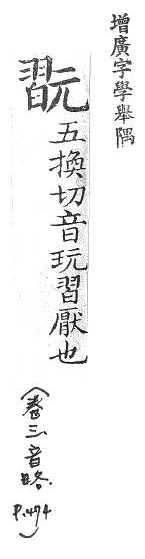 增廣字學舉隅
翫
五換切音玩習厭也
(卷三、音略.
P.474)